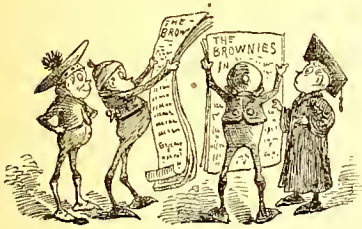 THE
BROW
THE
BROWNIES
IN